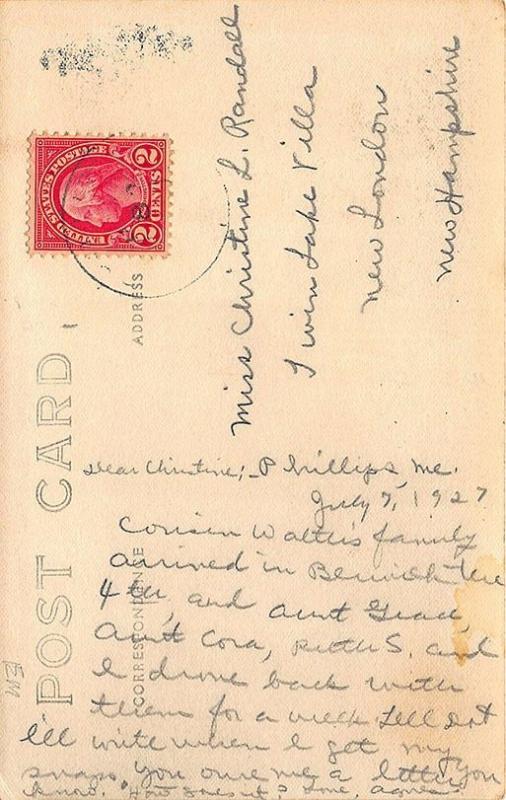 UNITED STATES POSTAGE
2 CENTS 2
POST CARD
ADDRESS
CORRESPONDENCE
Miss Christine L. Randall
Twin Lake Villa
New London
New Hampshire
Dear Christine; Phillips, Me.
July 7, 1927
Cousin Walter's family
arrived in Berwick the
4th, and Aunt Grace,
Aunt Cora, Ruth S. and
I drove back with
them for a week. Tell Dot
I'll write when I get my
snaps. You owe me a letter you
know. "How goes it"? Love, Agnes